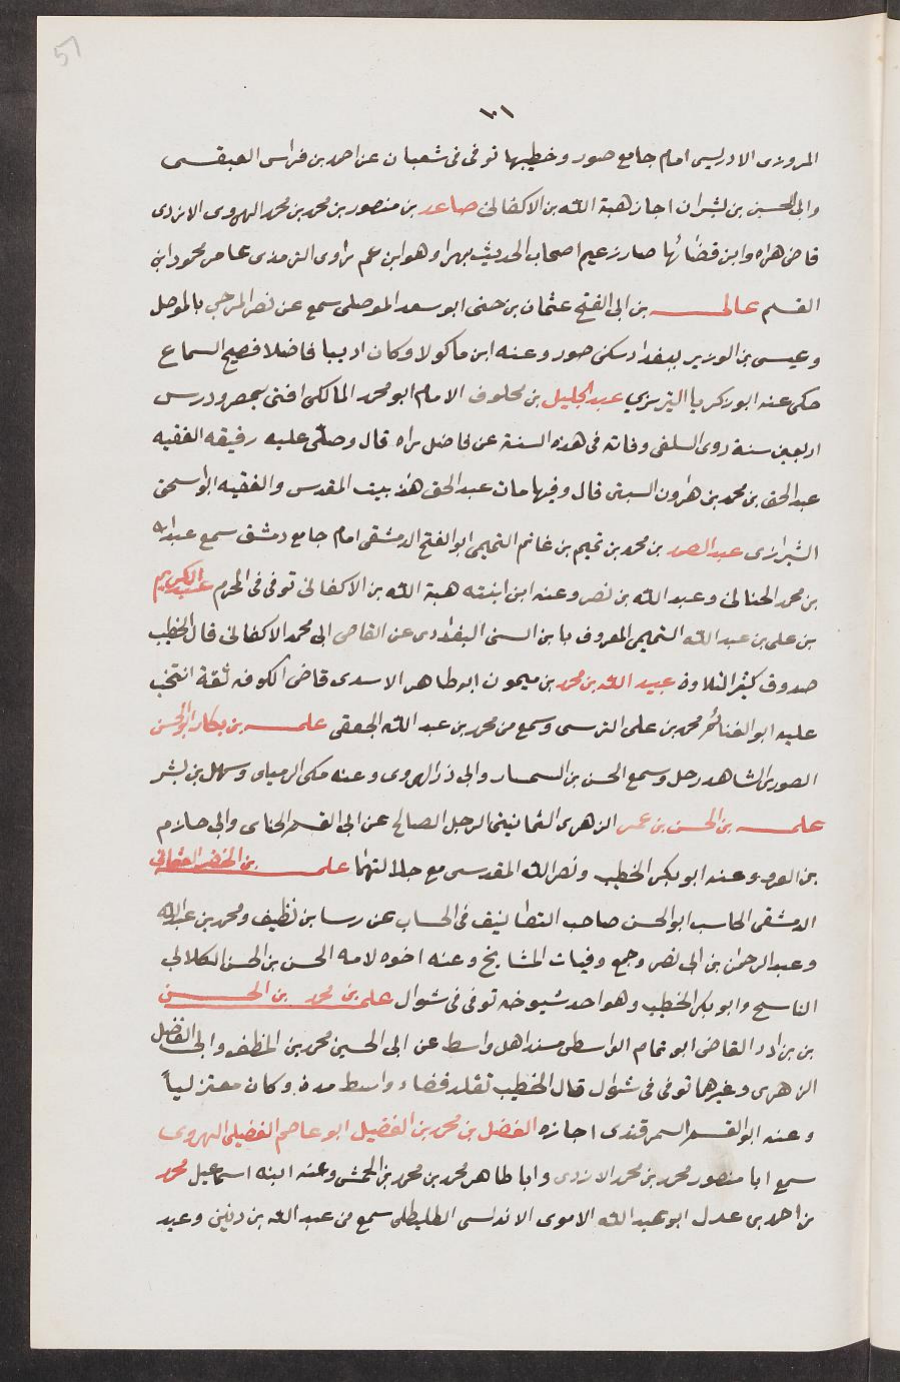 51
١٠١
المروزى الادريسى امام جامع صور وخطيبها توفى فى شعبان عن احمد بن فراس العبقسى
وابى الحسين بن بشران اجاز هبة الله بن الاكفانى صاعد بن منصور بن محمد بن محمد الهروى الازدى
قاضى هراه وابن قضاتها صار زعيم اصحاب الحديث بهراه وهو ابن عم راوى الترمذى عامر محمود ابن
القسم عالى بن ابى الفتح عثمان بن جنى ابو سعد الموصلى سمع عن نصر المرجى بالموصل
وعيسى بن الوزير ببغداد سكن صور وعنه ابن ماكولا وكان اديبا فاضلا فصيح السماع
حكى عنه ابو زكريا التبريزي عبد الجليل بن مخلوف الامام ابو محمد المالكى افتى بمصر ودرس
اربعين سنة روى السلفى وفاته فى هذه السنة عن فاضل راه قال وصلى عليه رفيقه الفقيه
عبد الحق بن محمد بن هارون السبتى قال وفيها مات عبد الحق هذا ببيت المقدس والفقيه ابو اسحق
الشيرازى عبد الصمد بن محمد بن تميم بن غانم التميمى ابو الفتح الدمشقى امام جامع دمشق سمع عبد الله
بن محمد الحنائى وعبد الله بن نصر وعنه ابن ابنته هبة الله بن الاكفانى توفى فى المحرم عبد الكريم
بن على بن عبد الله التميمى المعروف بابن السنى البغدادى عن القاضى ابى محمد الاكفانى قال الخطيب
صدوق كثير التلاوة عبيد الله بن محمد بن ميمون ابو طاهر الاسدى قاضى الكوفه ثقة انتخب
عليه ابو الغنائم محمد بن على النرسى وسمع من محمد بن عبد الله الجعفى على بن بكار ابو الحسن
الصورى الشاهد رحل وسمع الحسن بن السمسار وابى ذر الهروى وعنه مكى الرميلى وسهل بن بشر
على بن الحسن بن عمر الزهرى الثمانينى الرجل الصالح عن ابى القسم الحنائى وابى حازم
بن الفرا وعنه ابو بكر الخطيب ونصر الله المقدسى مع جلالتهما على بن الخضر العثمانى
الدمشقى الحاسب ابو الحسن صاحب التصانيف فى الحساب عن رسا بن نظيف ومحمد بن عبد الله
وعبد الرحمن بن ابى نصر وجمع وفيات المشايخ وعنه اخوه لامه الحسن بن الحسن الكلابى
الناسخ وابو بكر الخطيب وهو احد شيوخه توفى فى شوال على بن محمد بن الحسن
بن يزداد القاضى ابو تمام الواسطى مسند اهل واسط عن ابى الحسين محمد بن المظفر وابى الفضل
الزهرى وغيرهما توفى فى شوال قال الخطيب تقلد قضاء واسط مدة وكان معتزلياً
وعنه ابو القسم السمرقندى اجازه الفضل بن محمد بن الفضيل ابو عاصم الفضيلى الهروى
سمع ابا منصور محمد بن محمد الازدى وابا طاهر محمد بن محمد بن محمش وعنه ابنه اسماعيل محمد
بن احمد بن عدل ابو عبد الله الاموى الاندلسى الطليطلى سمع من عبد الله بن دنين وعبد